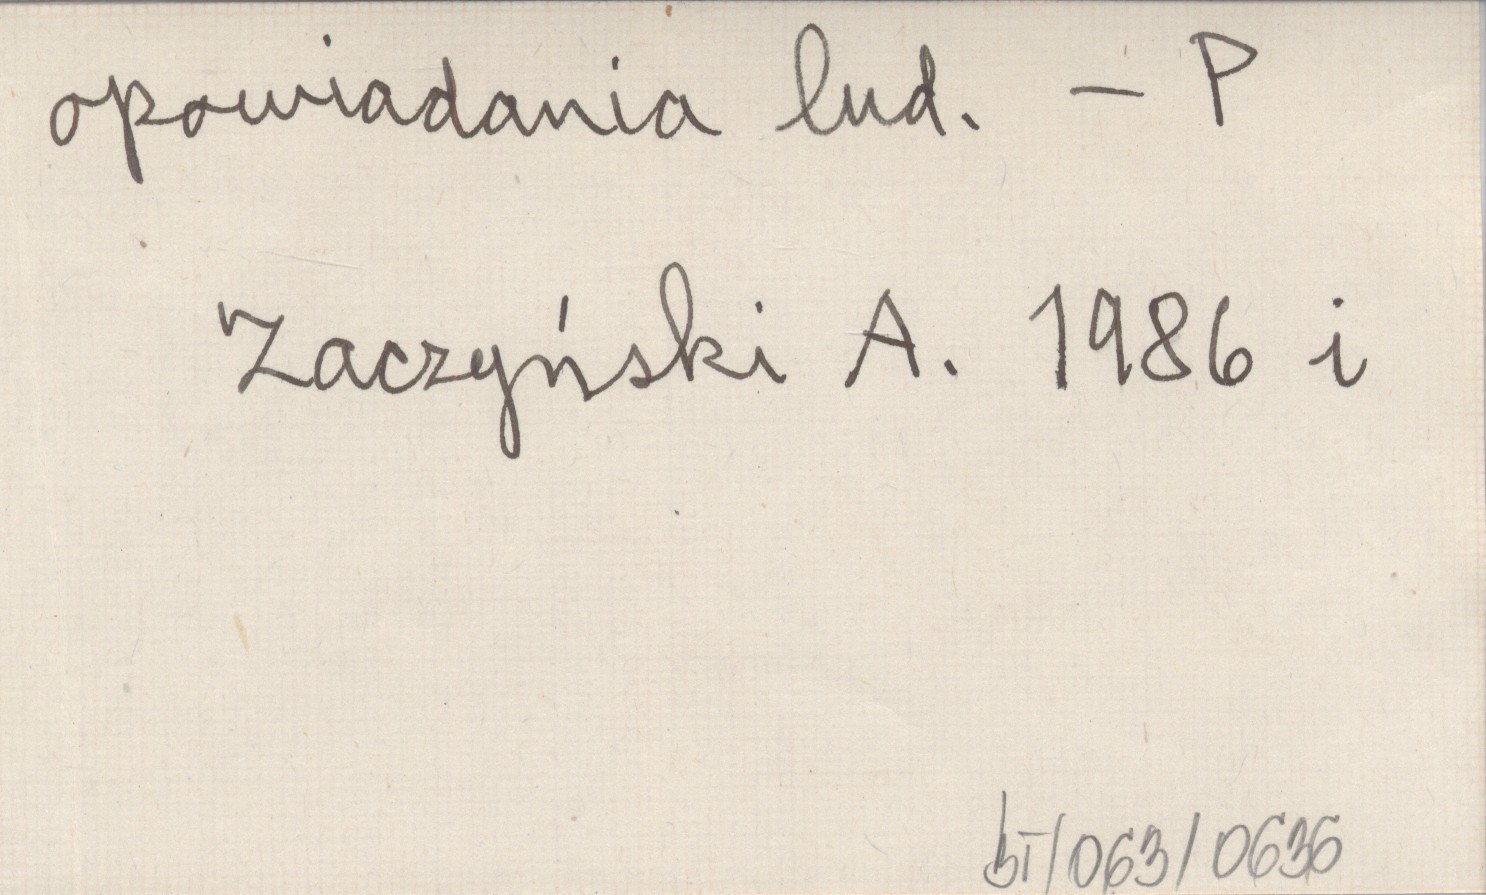 opowiadania lud. – P
Zaczyński A. 1986 i
bT/063/0636